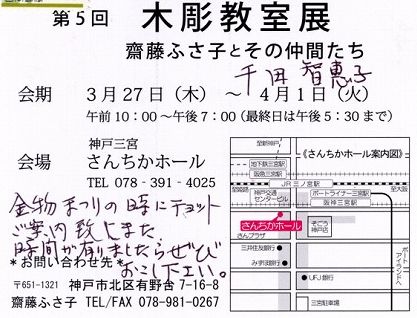 第5回 木彫教室展
齋藤ふさ子とその仲間たち
千田智恵子
会期 3月27日（木）～4月1日（火）
午前10：00～午後7：00（最終日は午後5：30まで）
会場 神戸三宮
さんちかホール
TEL 078-391-4025
金物まつりの時にチョット
ご案内致しました
時間が有りましたらぜひ
おこし下エい。
＊お問い合わせ先＊
〒651-1321 神戸市北区有野台7-16-8
齋藤ふさ子 TEL/FAX 078-981-0267
至新神戸
《さんちかホール案内図》
地下鉄三宮駅
阪急三宮駅
至姫路
JR三ノ宮駅
至大阪
神戸交通センタービル
ポートライナー三宮駅
阪神三宮駅
さんちかホール
さんプラザ
そごう神戸店
三井住友銀行
みずほ銀行
UFJ銀行
三宮駐車場
ポートアイランドへ